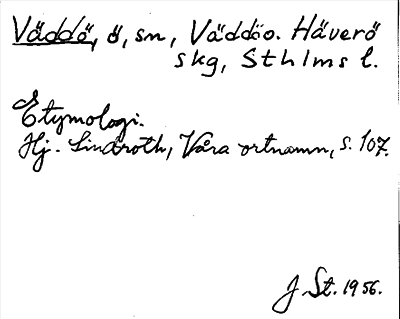 Väddö, ö, sn, Väddöo. Häverö
skg, Sthlms l.
Etymologi.
Hj. Lindroth, Våra ortnamn, s. 107.
J. St. 1956.